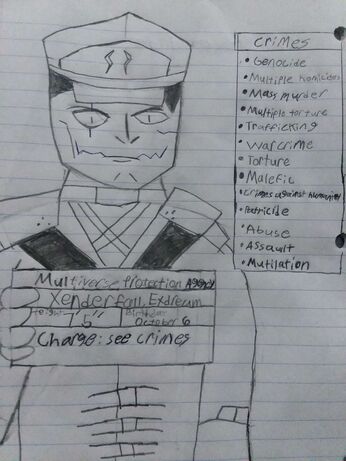 Crimes
• Genocide
• Multiple homicides
• Mass murder
• Multiple torture
• Trafficking
• Warcrime
• Torture
• Malefic
• Crimes against humanity
• Patricide
• Abuse
• Assault
• Mutilation
Multiverse Protection Agency
Xenderfoll, Exdream
Height Birthdate
'5" October 6
Charge: see crimes